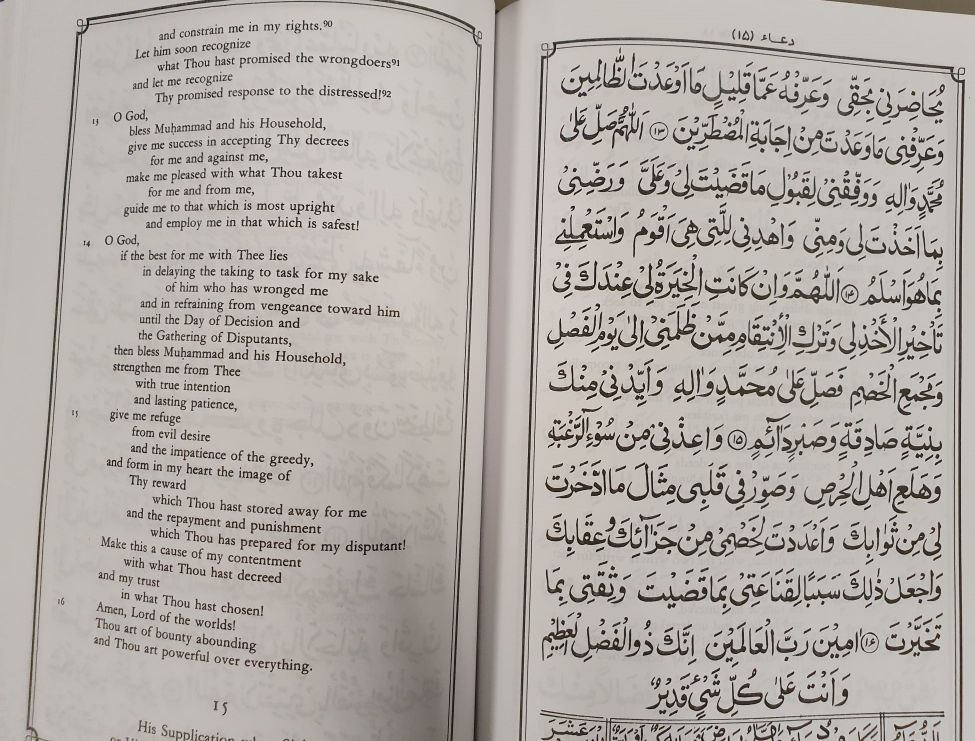 and constrain me in my rights.90
Let him soon recognize
what Thou hast promised the wrongdoers91
and let me recognize
Thy promised response to the distressed!92
13 O God,
bless Muḥammad and his Household,
give me success in accepting Thy decrees
for me and against me,
make me pleased with what Thou takest
for me and from me,
guide me to that which is most upright
and employ me in that which is safest!
14 O God,
if the best for me with Thee lies
in delaying the taking to task for my sake
of him who has wronged me
and in refraining from vengeance toward him
until the Day of Decision and
the Gathering of Disputants,
then bless Muḥammad and his Household,
strengthen me from Thee
with true intention
and lasting patience,
15 give me refuge
from evil desire
and the impatience of the greedy,
and form in my heart the image of
Thy reward
which Thou hast stored away for me
and the repayment and punishment
which Thou has prepared for my disputant!
Make this a cause of my contentment
with what Thou hast decreed
and my trust
in what Thou hast chosen!
16 Amen, Lord of the worlds!
Thou art of bounty abounding
and Thou art powerful over everything.
15
His Supplication
دعاء (۱۵)
يُحَاضِرَنِي بِحَقِّي وَعَرِّفْهُ عَمَّا قَلِيْلٍ مَا اَوْعَدْتَ الظَّالِمِيْنَ
وَعَرِّفْنِي مَا وَعَدْتَ مِنْ اِجَابَةِ الْمُضْطَرِّيْنَ ﴿۱۳﴾ اَللّٰهُمَّ صَلِّ عَلٰى
مُحَمَّدٍ وَاٰلِهِ وَوَفِّقْنِيْ لِقَبُوْلِ مَا قَضَيْتَ لِيْ وَعَلَيَّ وَرَضِّنِيْ
بِمَا اَخَذْتَ لِي وَمِنِّي وَاهْدِنِي لِلَّتِي هِيَ اَقْوَمُ وَاسْتَعْمِلْنِي
بِمَا هُوَ اَسْلَمُ ﴿۱۴﴾ اَللّٰهُمَّ وَاِنْ كَانَتِ الْخِيَرَةُ لِيْ عِنْدَكَ فِيْ
تَأْخِيْرِ الْاَخْذِ لِي وَتَرْكِ الْاِنْتِقَامِ مِمَّنْ ظَلَمَنِيْ اِلٰى يَوْمِ الْفَصْلِ
وَمَجْمَعِ الْخَصْمِ فَصَلِّ عَلٰى مُحَمَّدٍ وَاٰلِهِ وَاَيِّدْنِي مِنْكَ
بِنِيَّةٍ صَادِقَةٍ وَصَبْرٍ دَآئِمٍ ﴿۱۵﴾ وَاَعِذْنِيْ مِنْ سُوْٓءِ الرَّغْبَةِ
وَهَلَعِ اَهْلِ الْحِرْصِ وَصَوِّرْ فِي قَلْبِي مِثَالَ مَا ادَّخَرْتَ
لِيْ مِنْ ثَوَابِكَ وَاَعْدَدْتَ لِخَصْمِيْ مِنْ جَزَآئِكَ وَعِقَابِكَ
وَاجْعَلْ ذٰلِكَ سَبَبًا لِقَنَاعَتِيْ بِمَا قَضَيْتَ وَثِقَتِيْ بِمَا
تَخَيَّرْتَ ﴿۱۶﴾ اٰمِيْنَ رَبَّ الْعَالَمِيْنَ اِنَّكَ ذُو الْفَضْلِ الْعَظِيْمِ
وَاَنْتَ عَلٰى كُلِّ شَيْءٍ قَدِيْرٌ